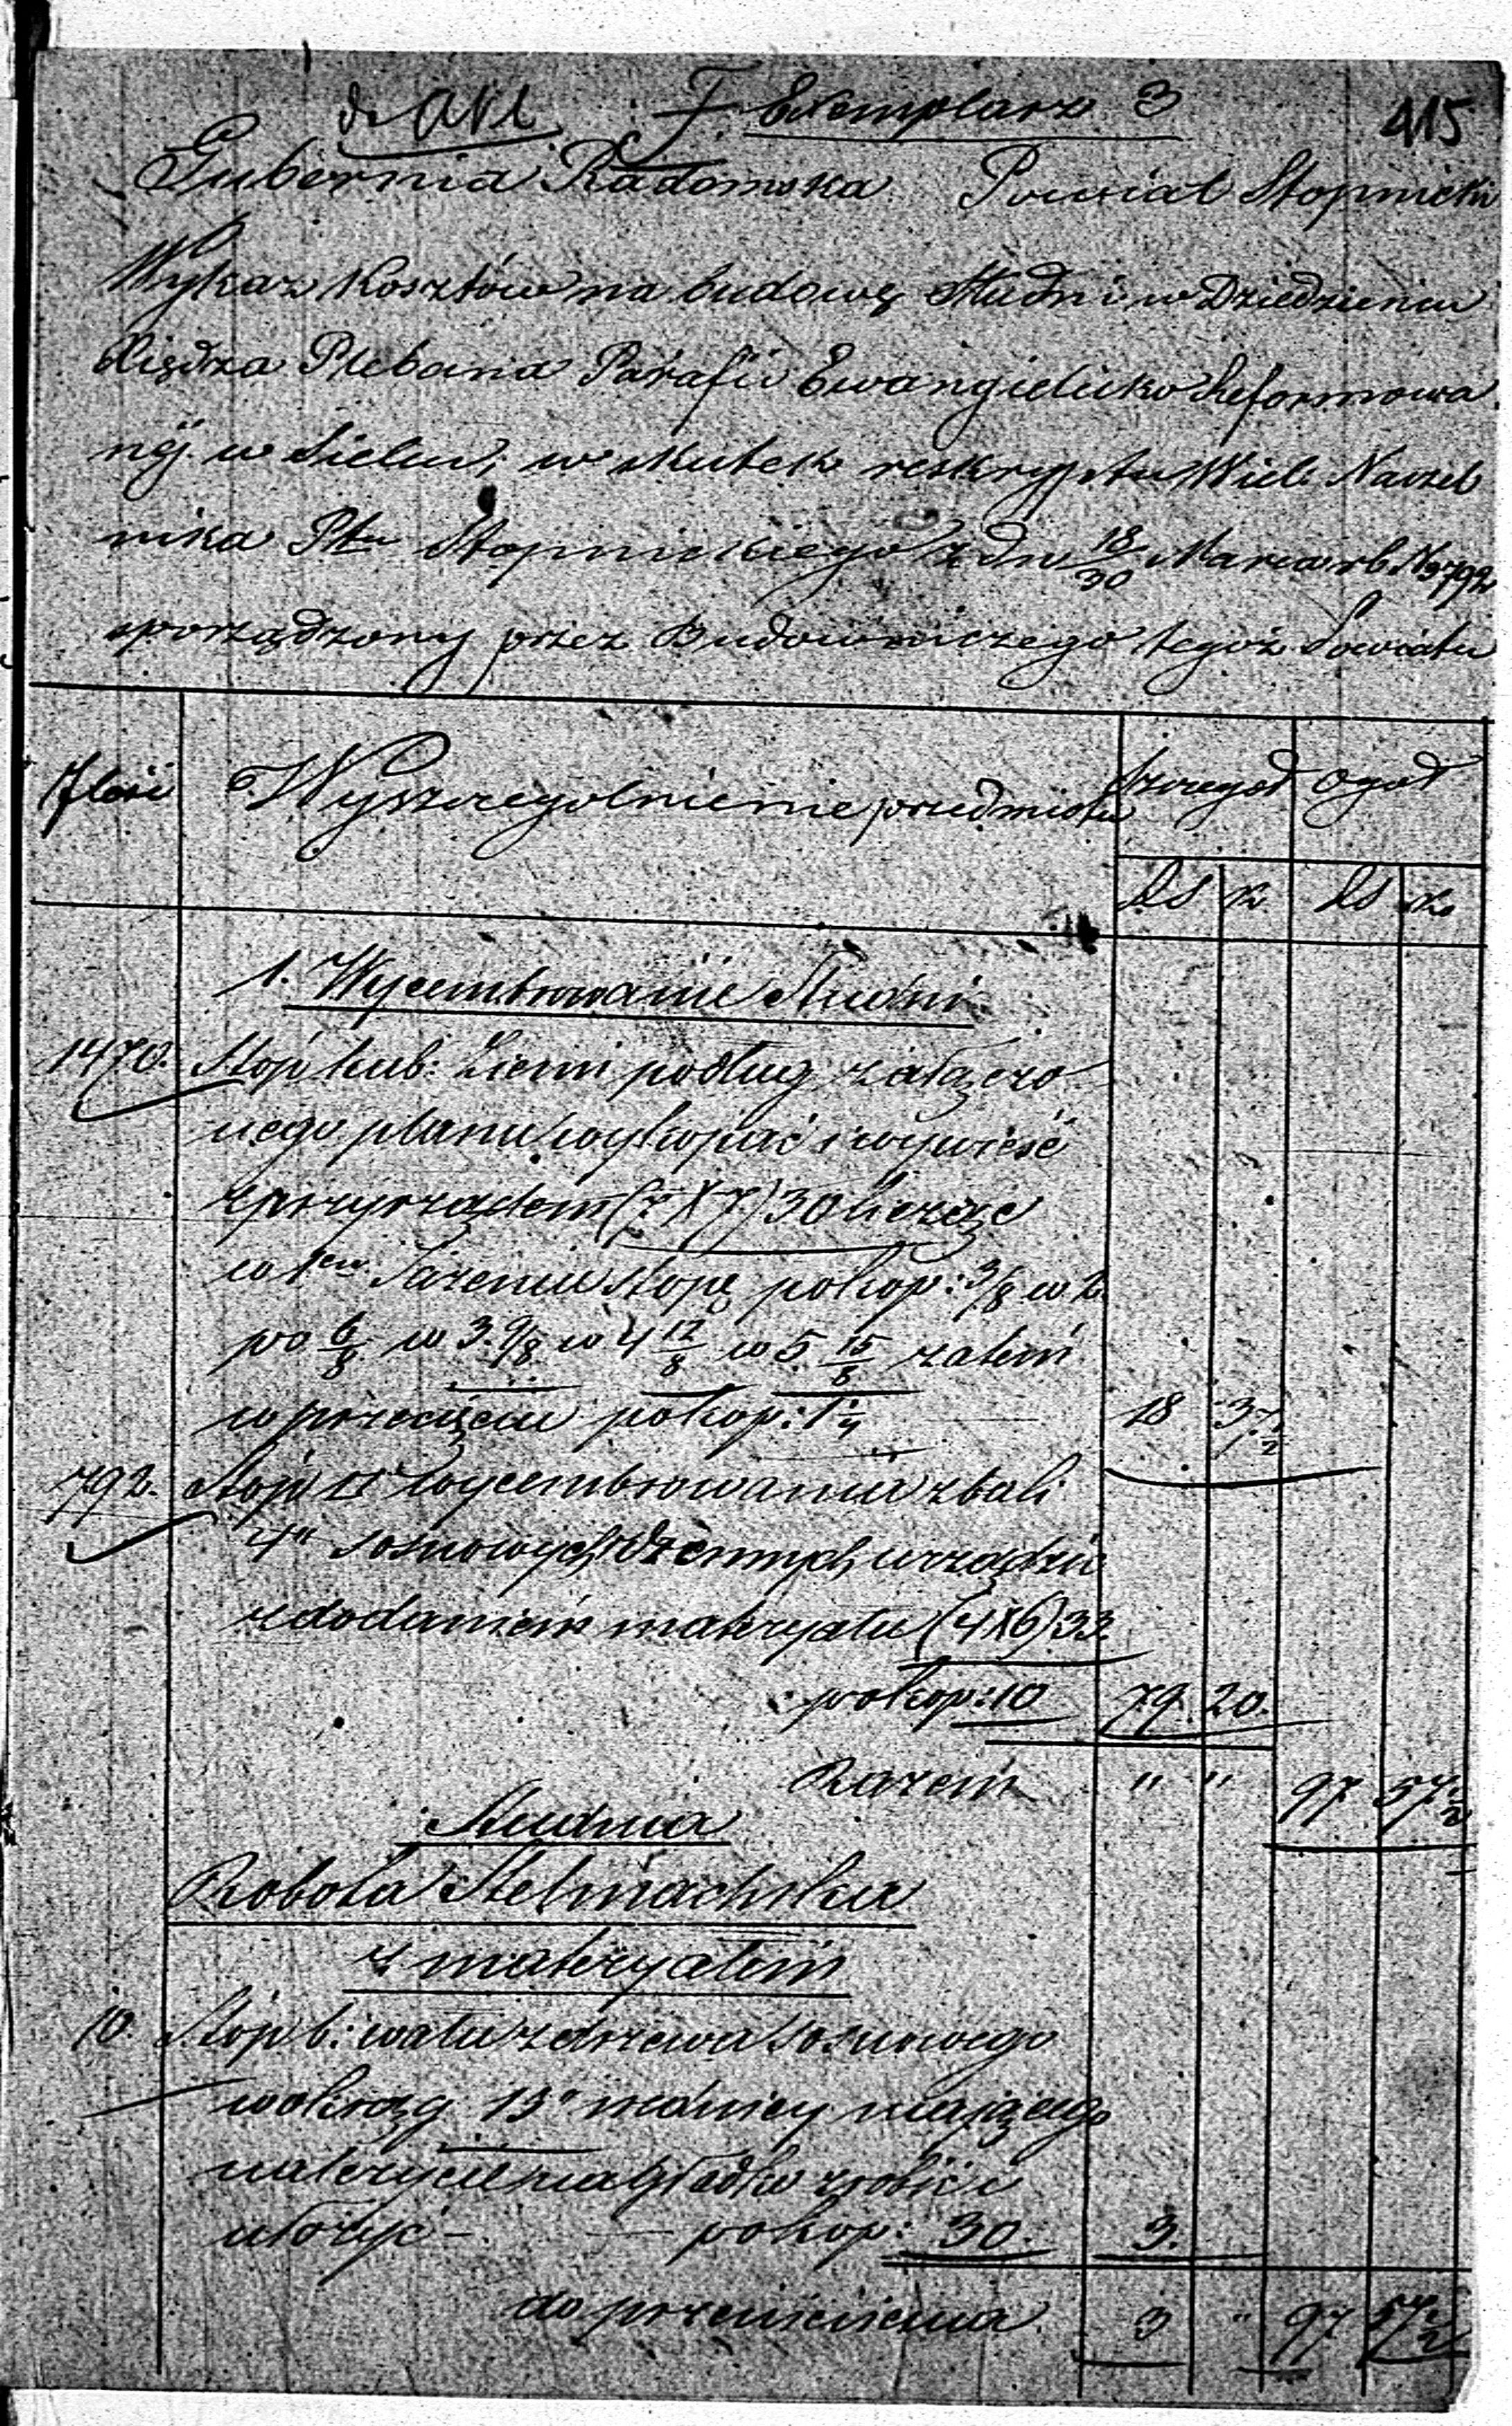 Exemplarz 3
415
Gubernia Radomska Powiat Stopnicki
Wykaz Kosztów na budowę Studni w Dziedzieńcu
Xiędza Plebana Parafii Ewangielicko Reformowa
néj w Sielcu, w skutek reskryptu Wiel. Naczel
nika Ptu Stopnickiego z dn 18/30 Marca rb N 3792
sporządzony przez Budowniczego tegoż Powiatu
Ilość Wyszczególnienie przedmiotu Szczegół Ogół
Rs k Rs k
1. Wycembrowanie Studni
1470. Stóp kub: Ziemi podług załączo
nego planu wykopać i wywieść
z przyrządem (7X7)30 licząc
w 1em Sążeniu stopę po kop: 3/8 w 2.
po 6/8 w 3. 9/8 w 4 12/8 w 5 15/8 zatem
w przecięciu po kop: 1 1/4 18 37 1/2
792. Stóp □ wycembrowania z bali
4" sosnowych urządzić
z dodaniem materyału (4X6)33.
po kop: 10 79. 20.
Razem " " 97 57 1/2
Studnia
Robota Stelmachska
z materyałem
10. Stóp b: wału z drzewa sosnowego
w okrąg 15" mającego
zrobić i
ułożyć – — po kop: 30. 3.
do przeniesienia 3 " 97 57 1/2